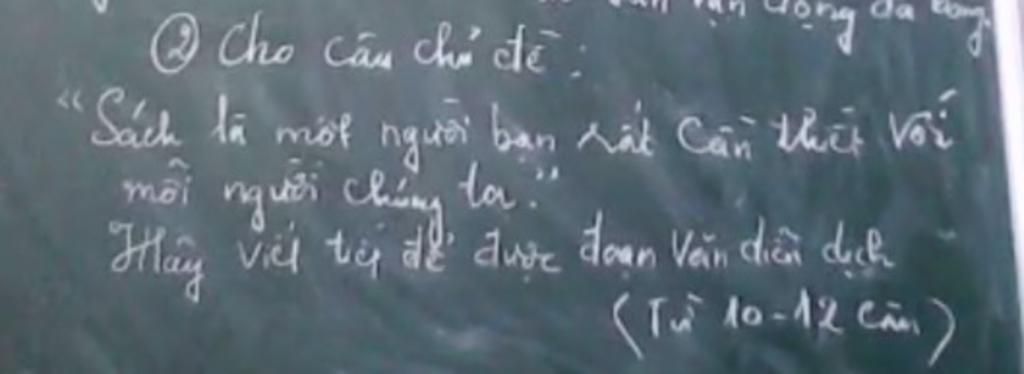 vận động da dạng.
② Cho câu chủ đề:
“Sách là một người bạn rất cần thiết với
mỗi người chúng ta.”
Hãy viết tiếp để được đoạn văn diễn dịch
(Từ 10-12 câu)